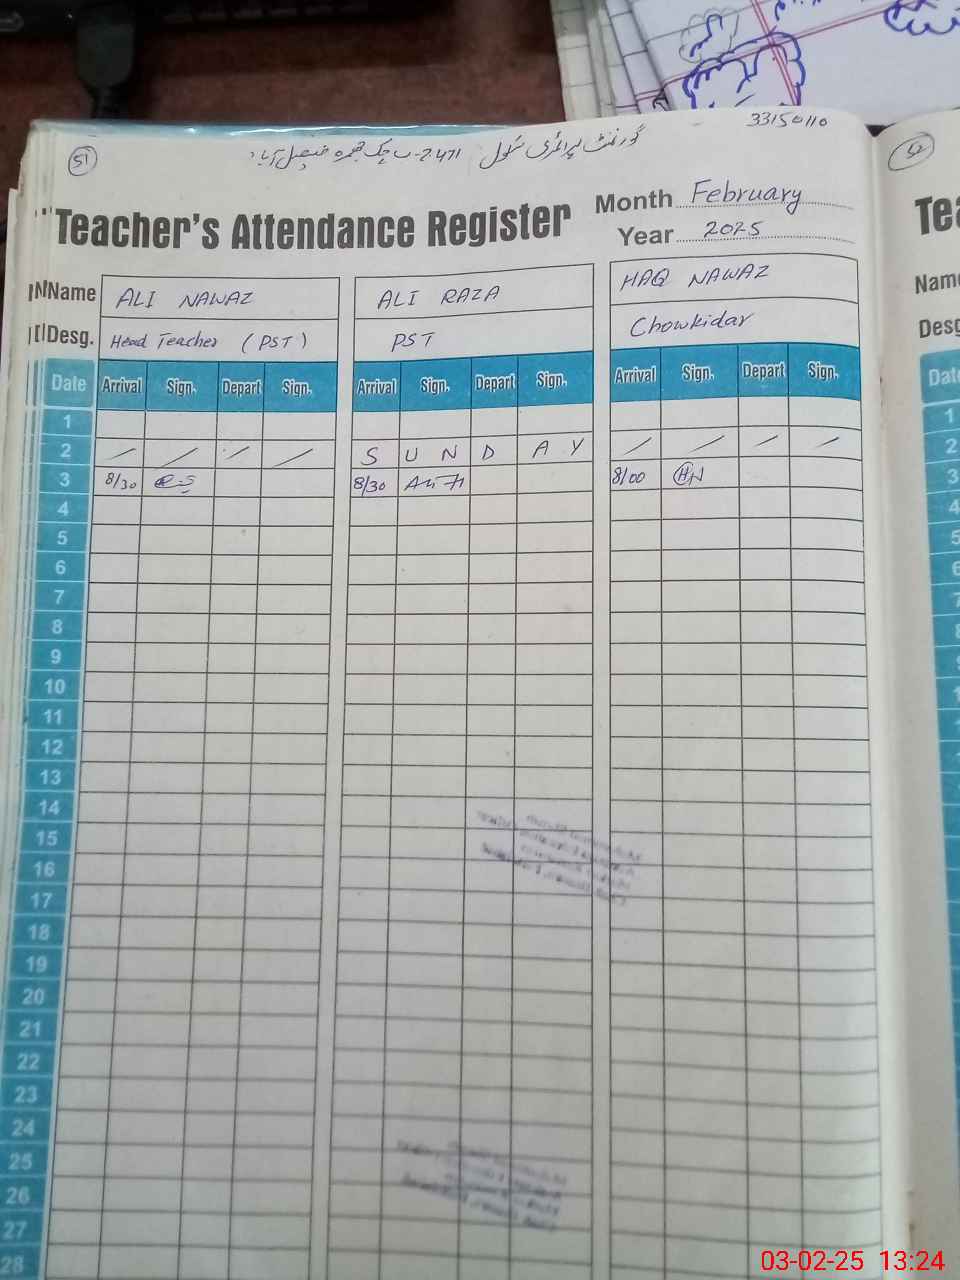 33150110
51
گورنمنٹ پرائمری سکول
52
Teacher's Attendance Register
Month February
Year 2025
Tea
Name ALI NAWAZ ALI RAZA HAQ NAWAZ
Name
Desg. Head Teacher (PST) PST Chowkidar
Desg
Date Arrival Sign. Depart Sign. Arrival Sign. Depart Sign. Arrival Sign. Depart Sign.
Date
1
2 / / / / S U N D A Y / / / /
3 8/30 8/30 8/00 HN
4
5
6
7
8
9
10
11
12
13
14
15
16
17
18
19
20
21
22
23
24
25
26
27
28
03-02-25 13:24